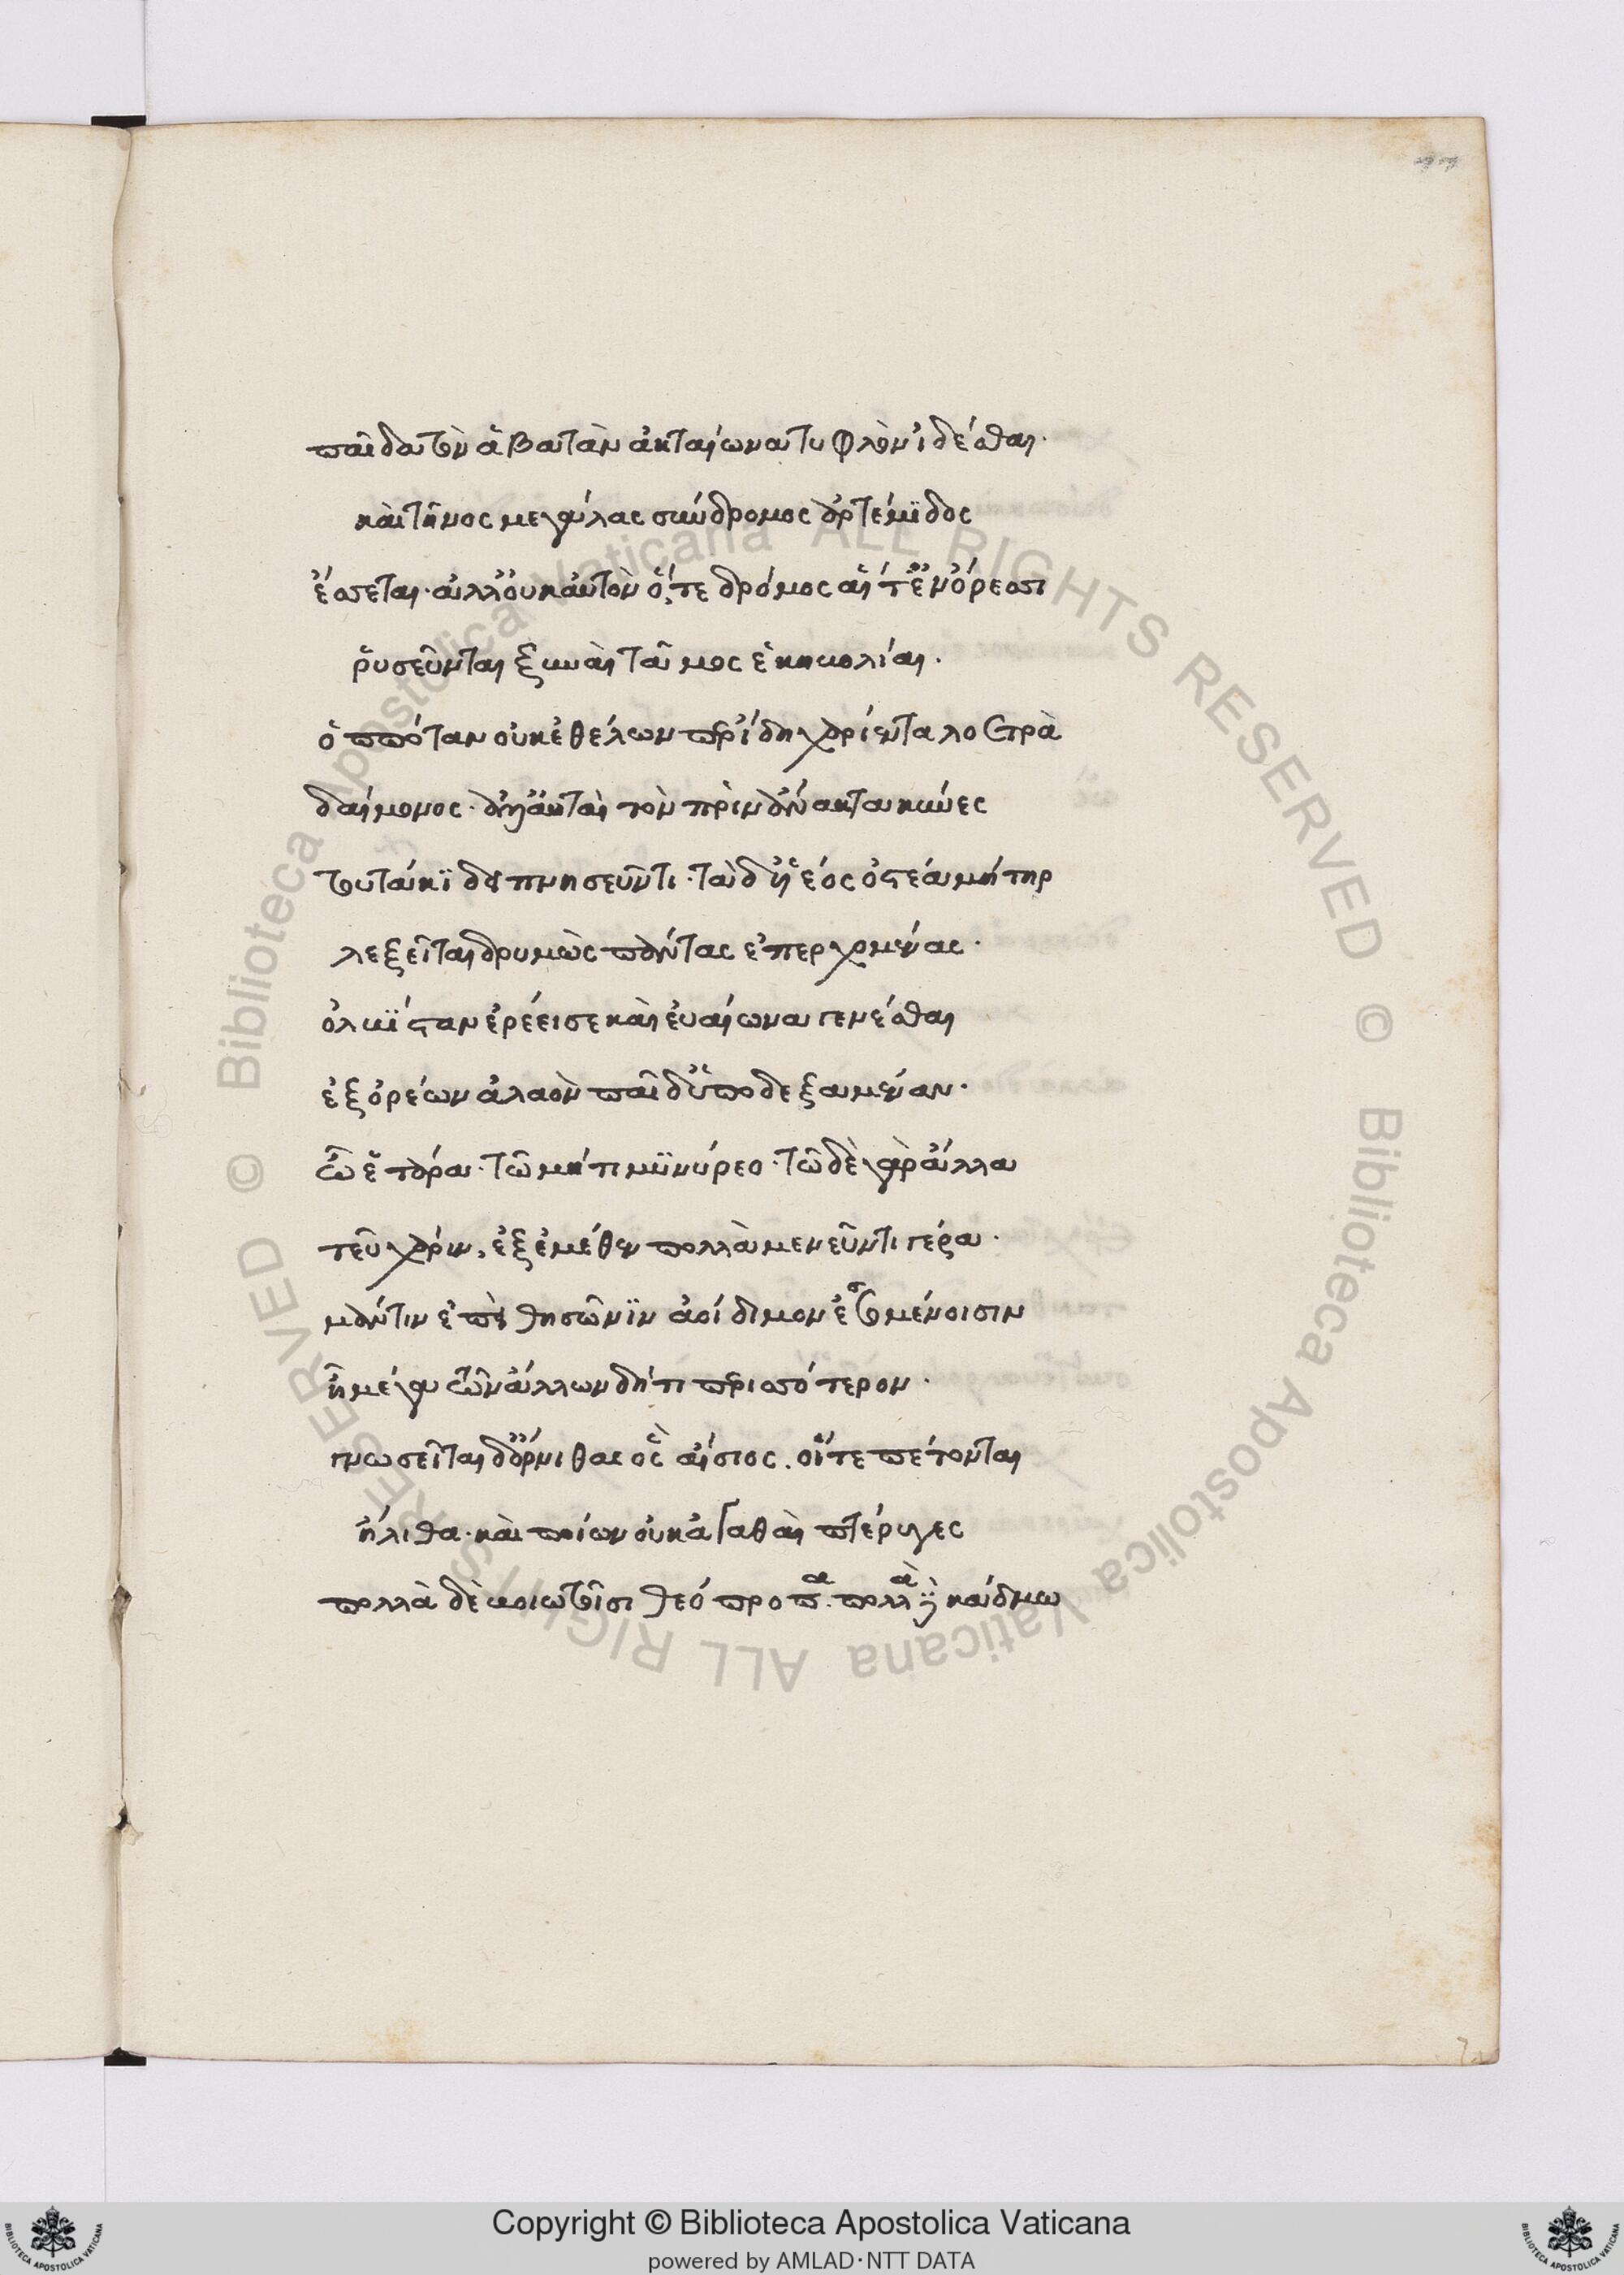 παῖδα τὸν ἁβατὰν ἀκταίωνα τυφλὸν ἰδέσθαι·
καὶ τῆνος μεγάλας σύνδρομος ἀρτέμιδος
ἔσσεται· ἀλλ' οὐκ αὐτὸν ὅ,τε δρόμος αἵ τ' ἐν ὄρεσσι
ῥυσεῦνται ξυναὶ τᾶμος ἑκηβολίαι.
ὁππόταν οὐκ ἐθέλων περ ἴδη χαρίεντα λοετρὰ
δαίμονος· ἀλλ' αὐταὶ τὸν πρὶν ἄνακτα κύνες
τουτάκι δειπνησεῦντι· τὰ δ' υἱέος ὀστέα μήτηρ
λεξεῖται δρυμὼς πάντας ἐπερχομένας·
ὀλβίσταν ἐρέει σε καὶ εὐαίωνα γενέσθαι
ἐξ ὀρέων ἀλαὸν παῖδ' ὑποδεξαμέναν·
ὦ ἑτάρα· τῶ μή τι μινύρεο· τῶδε γὰρ ἄλλα
τεῦ χάριν, ἐξ ἐμέθεν πολλὰ μενεῦντι γέρα·
μάντιν ἐπεὶ θησῶ νιν ἀοίδιμον ἐσσομένοισιν
ἦ μέγα τῶν ἄλλων δή τι περισσότερον·
γνωσεῖται δ' ὄρνιθας ὃς αἴσιος. οἵ τε πέτονται
ἤλιθα· καὶ ποίων οὐκ ἀγαθαὶ πτέρυγες
πολλὰ δὲ βοιωτοῖσι θεοπρόπα· πολλὰ δὲ κάδμω
Copyright © Biblioteca Apostolica Vaticana
powered by AMLAD·NTT DATA